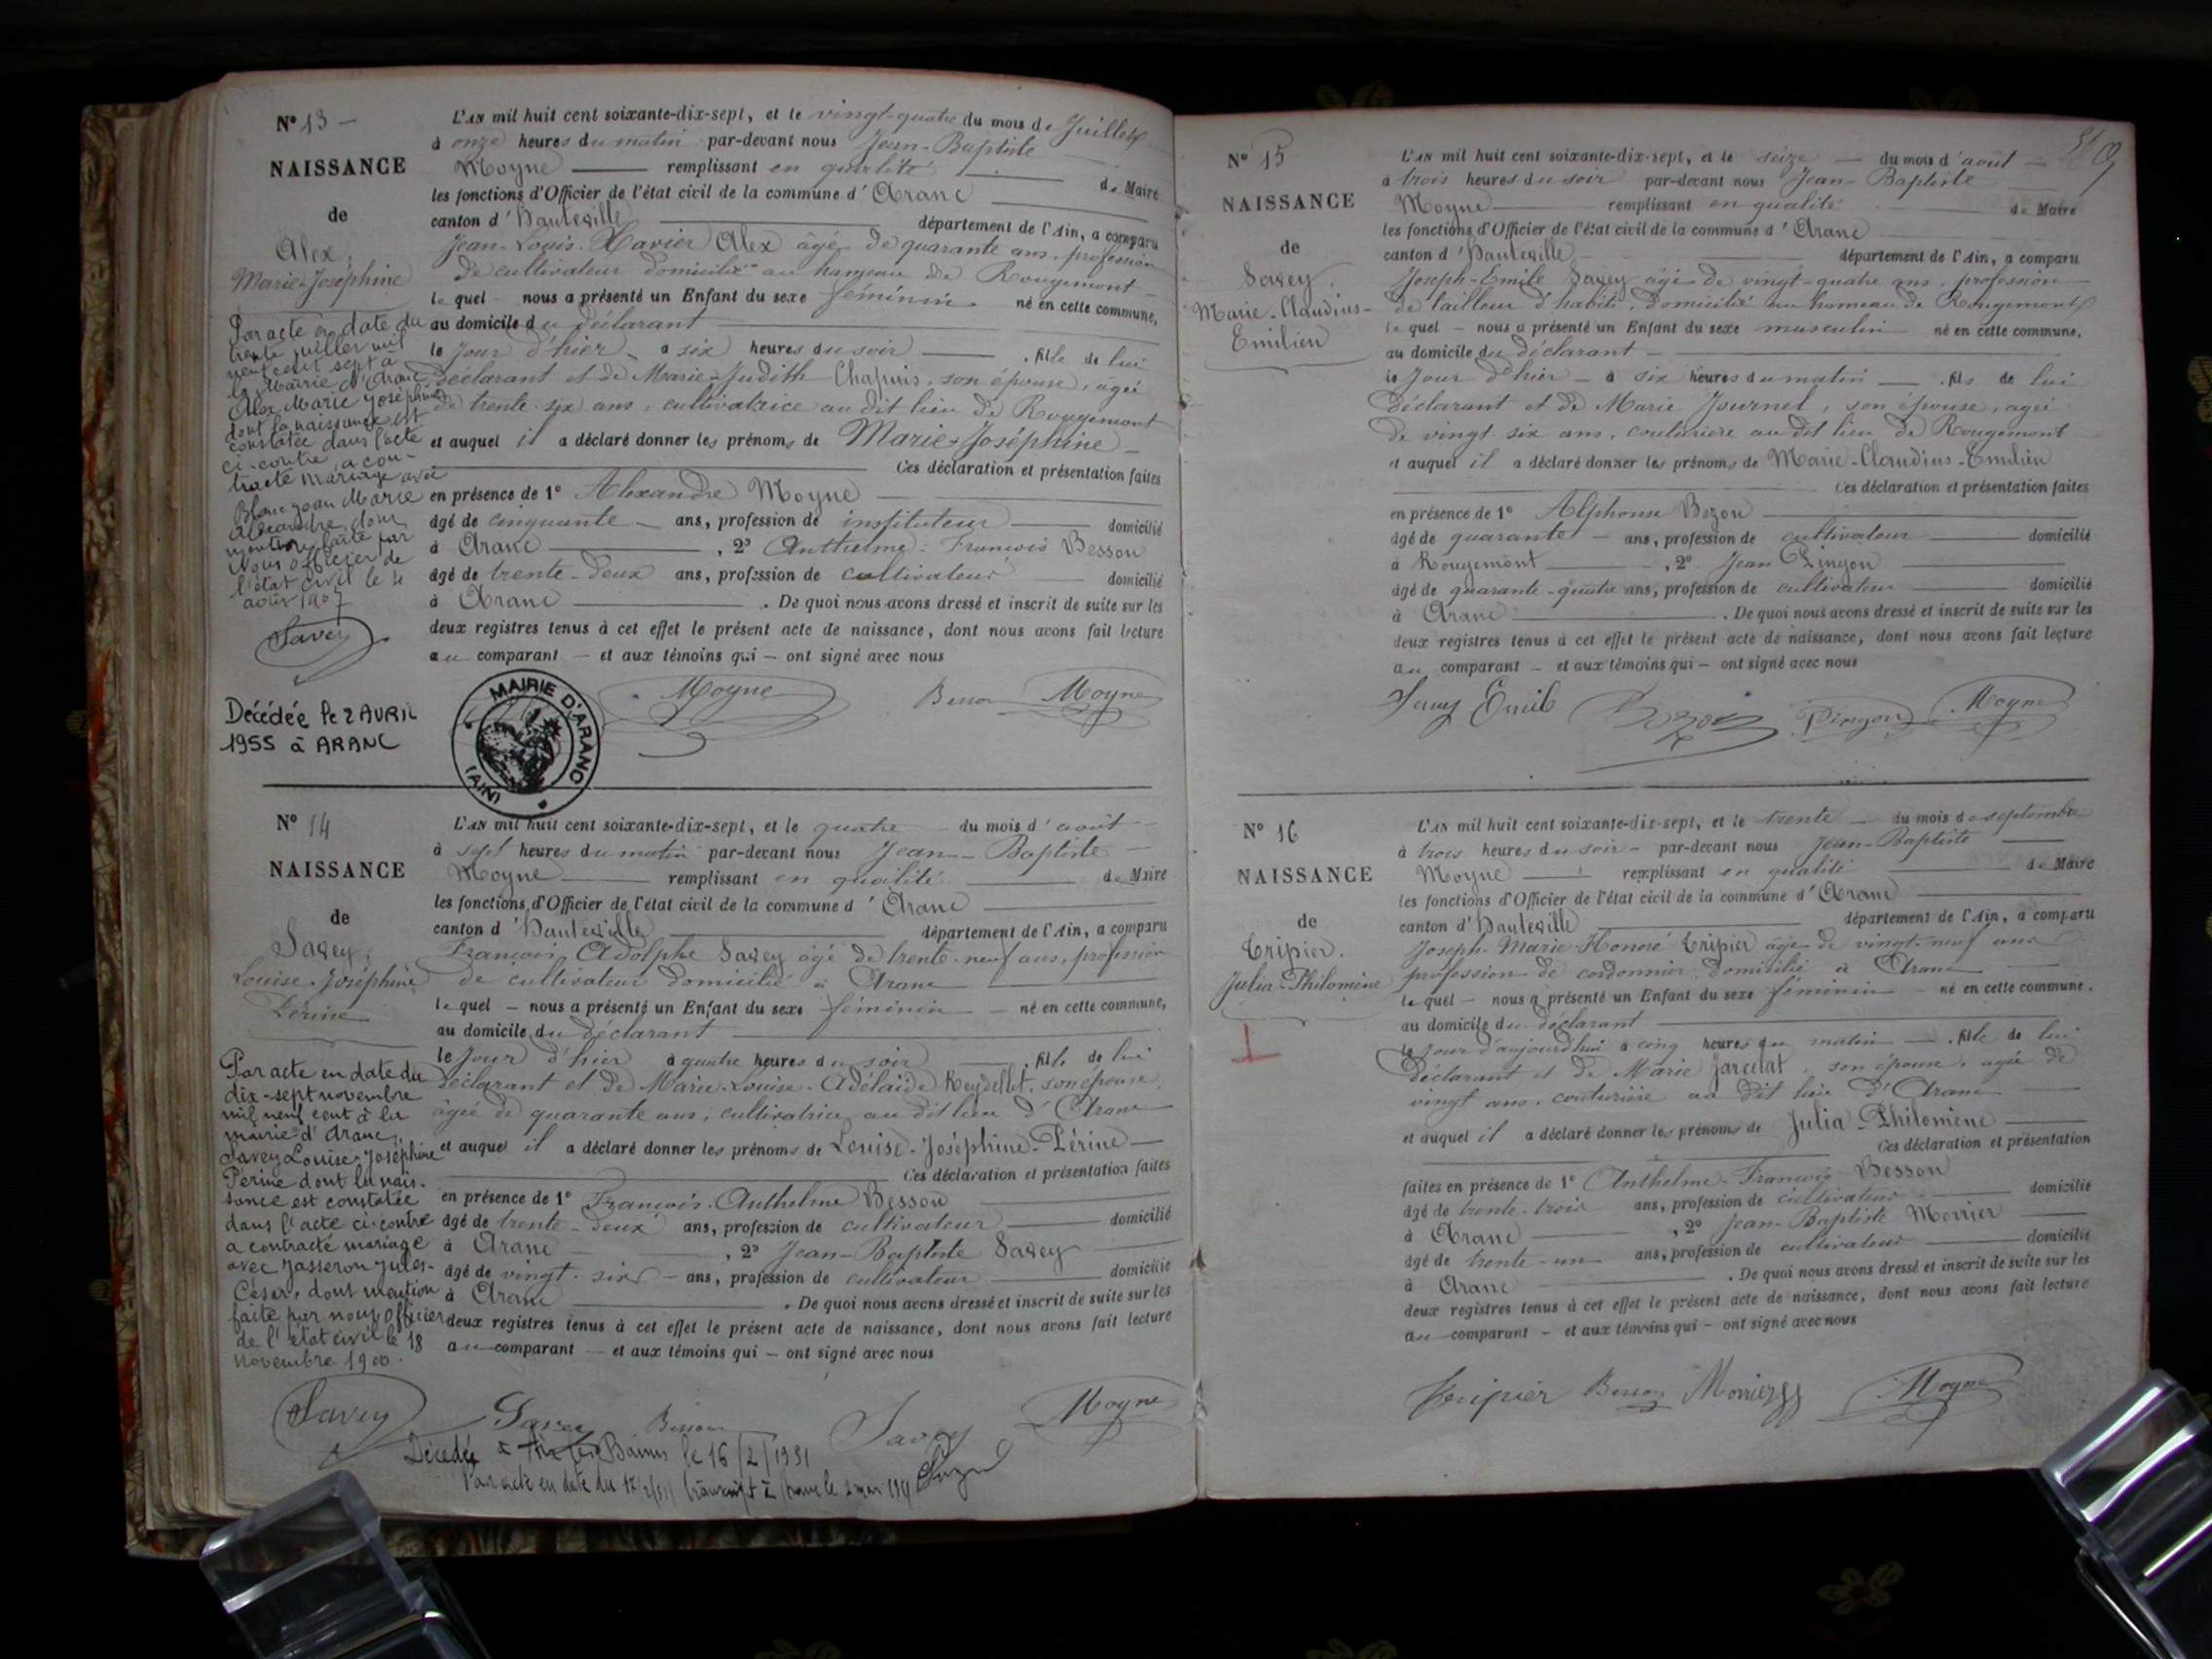 N° 13 —
NAISSANCE
de
Alex,
Marie-Joséphine
Par acte en date du
trente juillet mil
neuf cent sept à
la Mairie d'Aranc
Alex Marie Joséphine
dont la naissance est
constatée dans l'acte
ci-contre, a con-
tracté mariage avec
Blanc Jean Marie
Alexandre, dont
mention faite par
Nous officier de
l'état civil le 4
août 1907
Savey
Décédée le 2 AVRIL
1955 à ARANC
L'AN mil huit cent soixante-dix-sept, et le vingt-quatre du mois de Juillet
à onze heures du matin par-devant nous Jean-Baptiste
Moyne — remplissant en qualité — de Maire
les fonctions d'Officier de l'état civil de la commune d'Aranc
canton d'Hauteville — département de l'Ain, a comparu
Jean-Louis-Xavier Alex âgé de quarante ans, profession
de cultivateur domicilié au hameau de Rougemont
lequel nous a présenté un Enfant du sexe féminin né en cette commune,
au domicile du déclarant —
le jour d'hier, à six heures du soir — , fille de lui
déclarant et de Marie-Judith Chapuis, son épouse, agée
de trente-six ans, cultivatrice au dit lieu de Rougemont
et auquel il a déclaré donner les prénoms de Marie-Joséphine —
Ces déclaration et présentation faites
en présence de 1° Alexandre Moyne —
âgé de cinquante — ans, profession de instituteur — domicilié
à Aranc — , 2° Anthelme-François Besson
âgé de trente-deux ans, profession de cultivateur domicilié
à Aranc — . De quoi nous avons dressé et inscrit de suite sur les
deux registres tenus à cet effet le présent acte de naissance, dont nous avons fait lecture
au comparant — et aux témoins qui — ont signé avec nous
Moyne Besson Moyne
MAIRIE D'ARANC
(AIN)
N° 14
NAISSANCE
de
Savey,
Louise-Joséphine
Périne
Par acte en date du
dix-sept novembre
mil neuf cent à la
mairie d'Aranc,
Savey Louise-Joséphine
Périne dont la nais-
sance est constatée
dans l'acte ci-contre
a contracté mariage
avec Jasseron Jules-
César, dont mention
faite par nous officier
de l'état civil le 18
novembre 1900.
Savey
L'AN mil huit cent soixante-dix-sept, et le quatre du mois d'août —
à sept heures du matin par-devant nous Jean-Baptiste —
Moyne — remplissant en qualité — de Maire
les fonctions d'Officier de l'état civil de la commune d'Aranc —
canton d'Hauteville — département de l'Ain, a comparu
François Adolphe Savey âgé de trente-neuf ans, profession
de cultivateur domicilié à Aranc —
lequel — nous a présenté un Enfant du sexe féminin — né en cette commune,
au domicile du déclarant —
le jour d'hier à quatre heures du soir — , fille de lui
déclarant et de Marie-Louise-Adélaïde Reydellet, son épouse,
âgée de quarante ans, cultivatrice au dit lieu d'Aranc
et auquel il a déclaré donner les prénoms de Louise-Joséphine-Périne —
Ces déclaration et présentation faites
en présence de 1° François-Anthelme Besson
âgé de trente-deux ans, profession de cultivateur — domicilié
à Aranc — , 2° Jean-Baptiste Savey
âgé de vingt-six — ans, profession de cultivateur — domicilié
à Aranc — . De quoi nous avons dressé et inscrit de suite sur les
deux registres tenus à cet effet le présent acte de naissance, dont nous avons fait lecture
au comparant — et aux témoins qui — ont signé avec nous
Savey Besson Savey Moyne
Décédée à Aix les Bains le 16/2/1931
Par acte en date du transcrit à Aranc le 2 mars
N° 15
NAISSANCE
de
Savey,
Marie-Claudius-
Emilien
L'AN mil huit cent soixante-dix-sept, et le seize — du mois d'août —
à trois heures du soir par-devant nous Jean-Baptiste
Moyne — remplissant en qualité — de Maire
les fonctions d'Officier de l'état civil de la commune d'Aranc
canton d'Hauteville — département de l'Ain, a comparu
Joseph-Emile Savey âgé de vingt-quatre ans, profession
de tailleur d'habits, domicilié au hameau de Rougemont
lequel — nous a présenté un Enfant du sexe masculin né en cette commune,
au domicile du déclarant —
le jour d'hier — à six heures du matin — , fils de lui
déclarant et de Marie Journet, son épouse, agée
de vingt-six ans, couturière au dit lieu de Rougemont
et auquel il a déclaré donner les prénoms de Marie-Claudius-Emilien
Ces déclaration et présentation faites
en présence de 1° Alphonse Bozon —
âgé de quarante — ans, profession de cultivateur — domicilié
à Rougemont — , 2° Jean Pingon
âgé de quarante-quatre ans, profession de cultivateur — domicilié
à Aranc — . De quoi nous avons dressé et inscrit de suite sur les
deux registres tenus à cet effet le présent acte de naissance, dont nous avons fait lecture
au comparant — et aux témoins qui — ont signé avec nous
Savey Emile Bozon Pingon Moyne
N° 16
NAISSANCE
de
Tripier,
Julia-Philomène
L'AN mil huit cent soixante-dix-sept, et le trente — du mois de septembre
à trois heures du soir — par-devant nous Jean-Baptiste —
Moyne — remplissant en qualité — de Maire
les fonctions d'Officier de l'état civil de la commune d'Aranc —
canton d'Hauteville — département de l'Ain, a comparu
Joseph-Marie-Honoré Tripier âgé de vingt-neuf ans
profession de cordonnier domicilié à Aranc —
lequel — nous a présenté un Enfant du sexe féminin — né en cette commune,
au domicile du déclarant —
le jour d'aujourd'hui à cinq heures du matin — , fille de lui
déclarant et de Marie Jarcelat, son épouse, agée de
vingt ans, couturière au dit lieu d'Aranc
et auquel il a déclaré donner les prénoms de Julia-Philomène —
Ces déclaration et présentation
faites en présence de 1° Anthelme-François Besson
âgé de trente-trois ans, profession de cultivateur — domicilié
à Aranc — , 2° Jean-Baptiste Morrier —
âgé de trente-un ans, profession de cultivateur — domicilié
à Aranc — . De quoi nous avons dressé et inscrit de suite sur les
deux registres tenus à cet effet le présent acte de naissance, dont nous avons fait lecture
au comparant — et aux témoins qui — ont signé avec nous
Tripier Besson Morrier Moyne